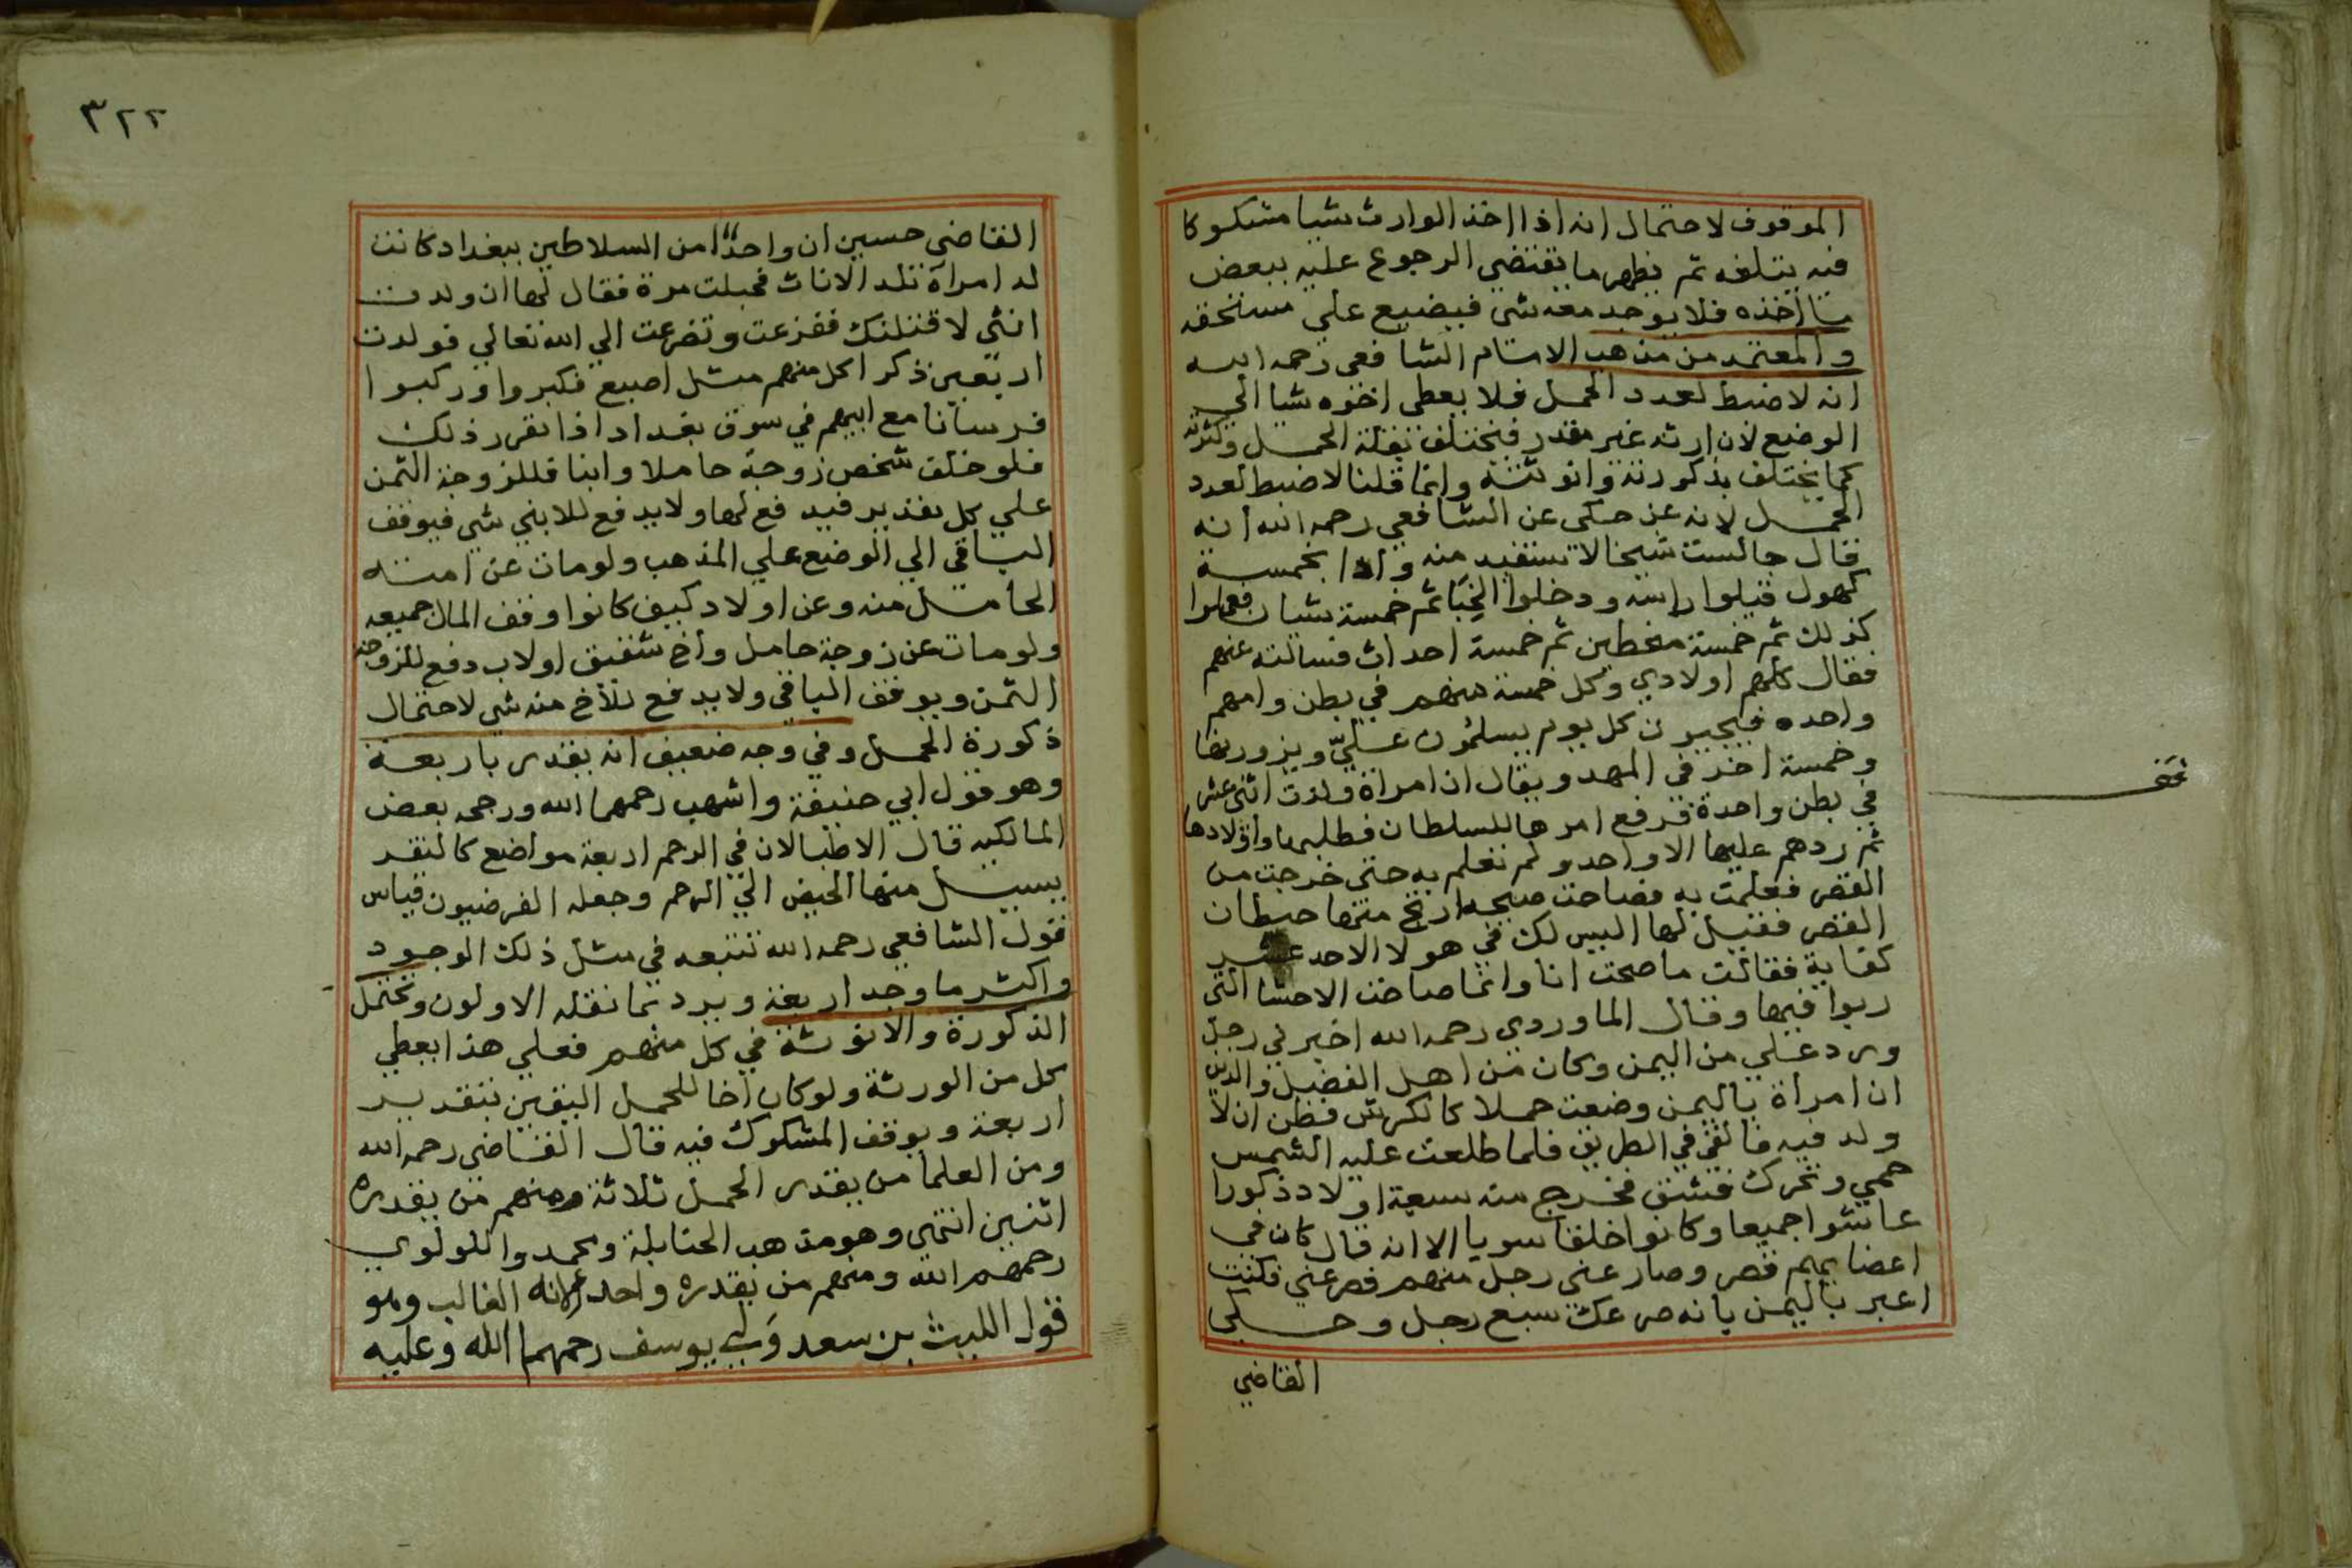 الموقوف لاحتمال انه اذا اخذ الوارث شيا مشكوكا
فيه يتلفه ثم يظهر ما يقتضي الرجوع عليه ببعض
ما اخذه فلا يوجد معه شي فيضيع علي مستحقه
والمعتمد من مذهب الامام الشافعي رحمه الله
انه لا ضبط لعدد الحمل فلا يعطي اخوه شيا الي
الوضع لان ارثه غير مقدر فيختلف بقلة الحمل وكثرته
كما يختلف بذكورته وانوثته وانما قلنا لا ضبط لعدد
الحمل لانه عن حكي عن الشافعي رحمه الله انه
قال جالست شيخا لاستفيد منه واذا بخمسة
كهول قبلوا راسه ودخلوا الخبا ثم خمسة شبان فعلوا
كذلك ثم خمسة منحطين ثم خمسة احداث فسالته عنهم
فقال كلهم اولادي وكل خمسة منهم في بطن وامهم
واحده فيجيون كل يوم يسلمون عليّ ويزورونها
وخمسة اخر في المهد ويقال ان امراة ولدت اثني عشر
في بطن واحدة فرفع امرها للسلطان فطلبها واولادها
ثم ردهم عليها الا واحد ولم تعلم به حتي خرجت من
القصر فعلمت به فصاحت صيحه ارتج منها حيطان
القصر فقيل لها اليس لك في هولا الاحد عشر
كفاية فقالت ما صحت انا وانما صاحت الاحشا التي
ربوا فيها وقال الماوردي رحمه الله اخبرني رجل
ورد علي من اليمن وكان من اهل الفضل والدين
ان امراة باليمن وضعت حملا كالكرش فظن ان لا
ولد فيه فالقي في الطريق فلما طلعت عليه الشمس
حمي وتحرك فشق فخرج منه سبعة اولاد ذكورا
عاشوا جميعا وكانوا خلقا سويا الا انه قال كان في
اعضايهم قصر وصارعني رجل منهم فصرعني فكنت
اعير باليمن بانه صرعك سبع رجل وحكي
القاضي
٣٢٢
القاضي حسين ان واحدًا من السلاطين ببغداد كانت
له امراة تلد الاناث فحبلت مرة فقال لها ان ولدت
انثي لاقتلنك ففزعت وتضرعت الي الله تعالي فولدت
اربعين ذكرا كل منهم مثل اصبع فكبروا وركبوا
فرسانا مع ابيهم في سوق بغداد اذا تقرر ذلك
فلو خلف شخص زوجة حاملا وابنا فللزوجة الثمن
علي كل تقدير فيدفع لها ولا يدفع للابن شي فيوقف
الباقي الي الوضع علي المذهب ولو مات عن امته
الحامل منه وعن اولاد كيف كانوا وقف المال جميعه
ولو مات عن زوجة حامل واخ شقيق او لاب دفع للزوجة
الثمن ويوقف الباقي ولا يدفع للاخ منه شي لاحتمال
ذكورة الحمل وفي وجه ضعيف انه يقدر باربعة
وهو قول ابي حنيفة واشهب رحمهما الله ورجحه بعض
المالكيه قال الاطبا لان في الرحم اربعة مواضع كالنقر
يسيل منها الحيض الي الرحم وجعله الفرضيون قياس
قول الشافعي رحمه الله تتبعه في مثل ذلك الوجود
واكثر ما وجد اربعة ويرد بما نقله الاولون ويحتمل
الذكورة والانوثة في كل منهم فعلي هذا يعطي
كل من الورثة ولو كان اخا للحمل اليقين بتقدير
اربعة ويوقف المشكوك فيه قال القاضي رحمه الله
ومن العلما من يقدر الحمل ثلاثة ومنهم من يقدره
اثنين انتهي وهو مذهب الحنابلة ومحمد واللولوي
رحمهم الله ومنهم من يقدره واحد لانه الغالب وهو
قول الليث بن سعد وابي يوسف رحمهما الله وعليه